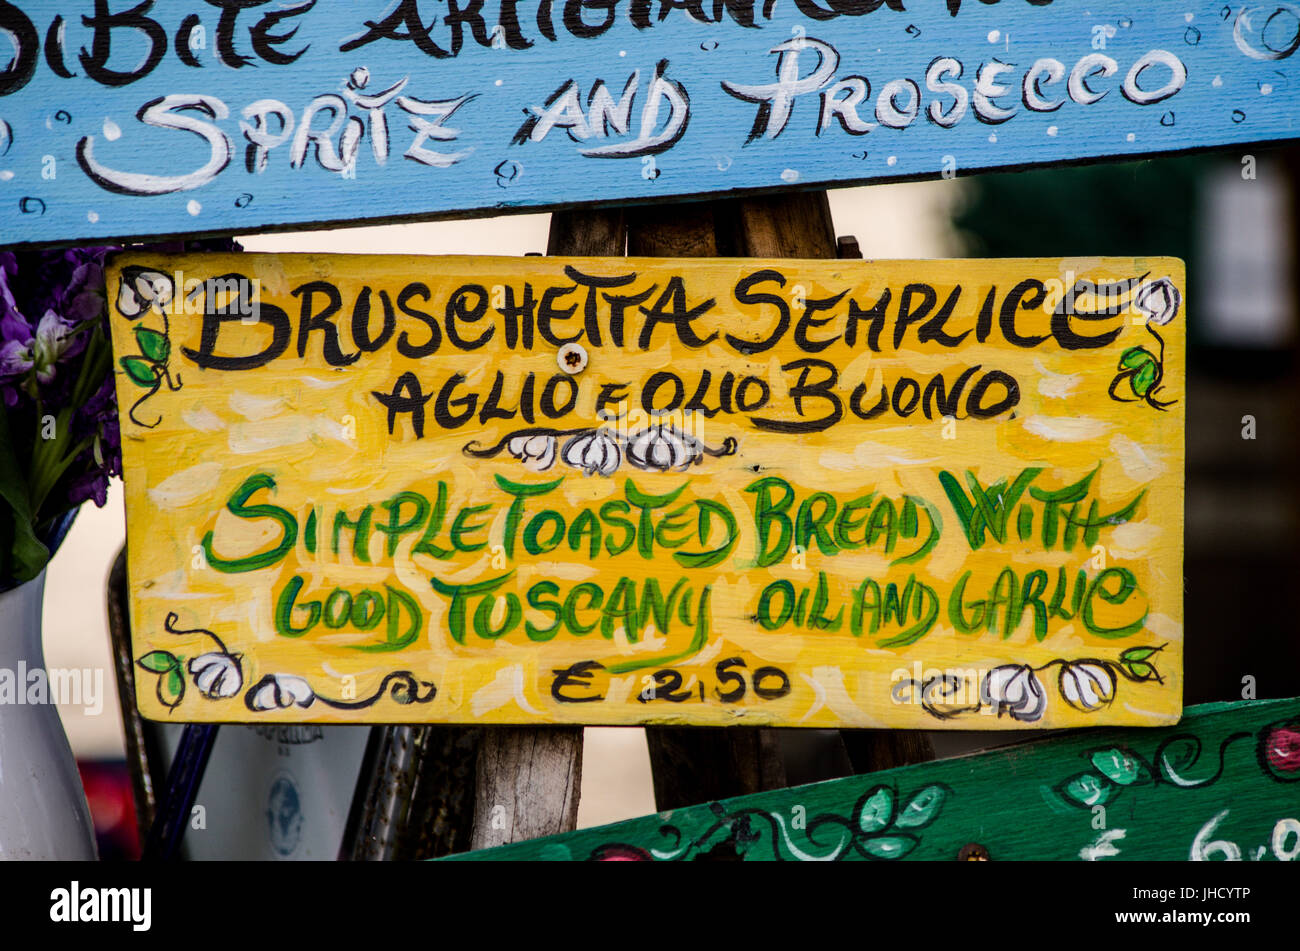 BIBITE ARTIGIANALI
SPRITZ AND PROSECCO
BRUSCHETTA SEMPLICE
AGLIO E OLIO BUONO.
SIMPLE TOASTED BREAD WITH
GOOD TUSCANY OIL AND GARLIC
€ 2,50
€ 6,0
alamy
alamy
Image ID: JHCYTP
www.alamy.com